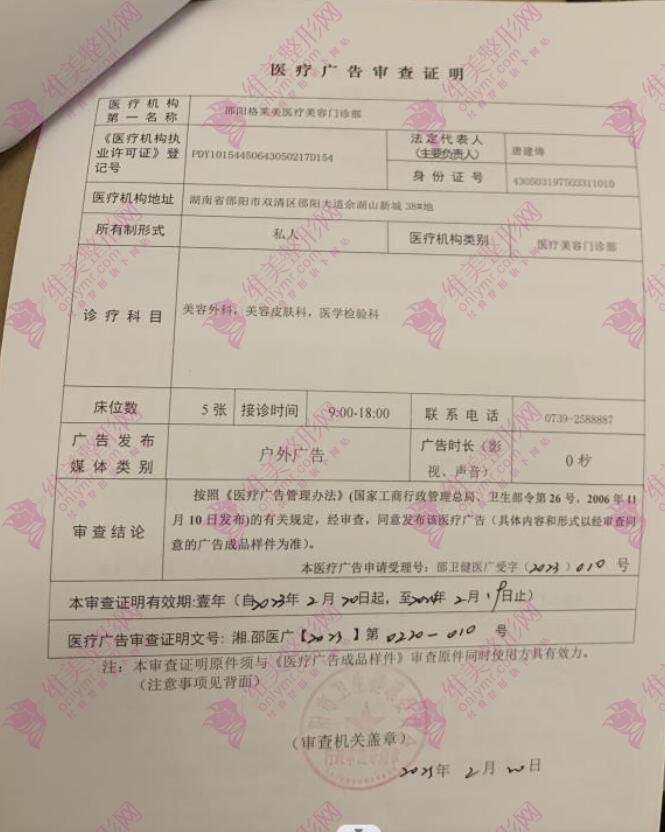 医疗广告审查证明
医疗机构
第一名称
邵阳格莱美医疗美容门诊部
《医疗机构执
业许可证》登
记号
PDY10154450643050217D154
法定代表人
(主要负责人)
唐建
身份证号
430503197503311010
医疗机构地址
湖南省邵阳市双清区邵阳大道佘湖山新城38#地
所有制形式
私人
医疗机构类别
医疗美容门诊部
诊疗科目
美容外科，美容皮肤科，医学检验科
床位数
5 张
接诊时间
9:00-18:00
联系电话
0739-2588887
广告发布
媒体类别
户外广告
广告时长（影
视、声音）
0 秒
审查结论
按照《医疗广告管理办法》(国家工商行政管理总局、卫生部令第26号，2006年11
月10日发布)的有关规定，经审查，同意发布该医疗广告（具体内容和形式以经审查同
意的广告成品样件为准）。
本医疗广告申请受理号：邵卫健医广受字（2023）010 号
本审查证明有效期:壹年（自2023年 2月 20日起，至2024年 2月 19日止）
医疗广告审查证明文号：湘.邵医广【2023】第 0220-010 号
注：本审查证明原件须与《医疗广告成品样件》审查原件同时使用方具有效力。
（注意事项见背面）
（审查机关盖章）
2023年 2月 20日
维美整形网
onlymr.com